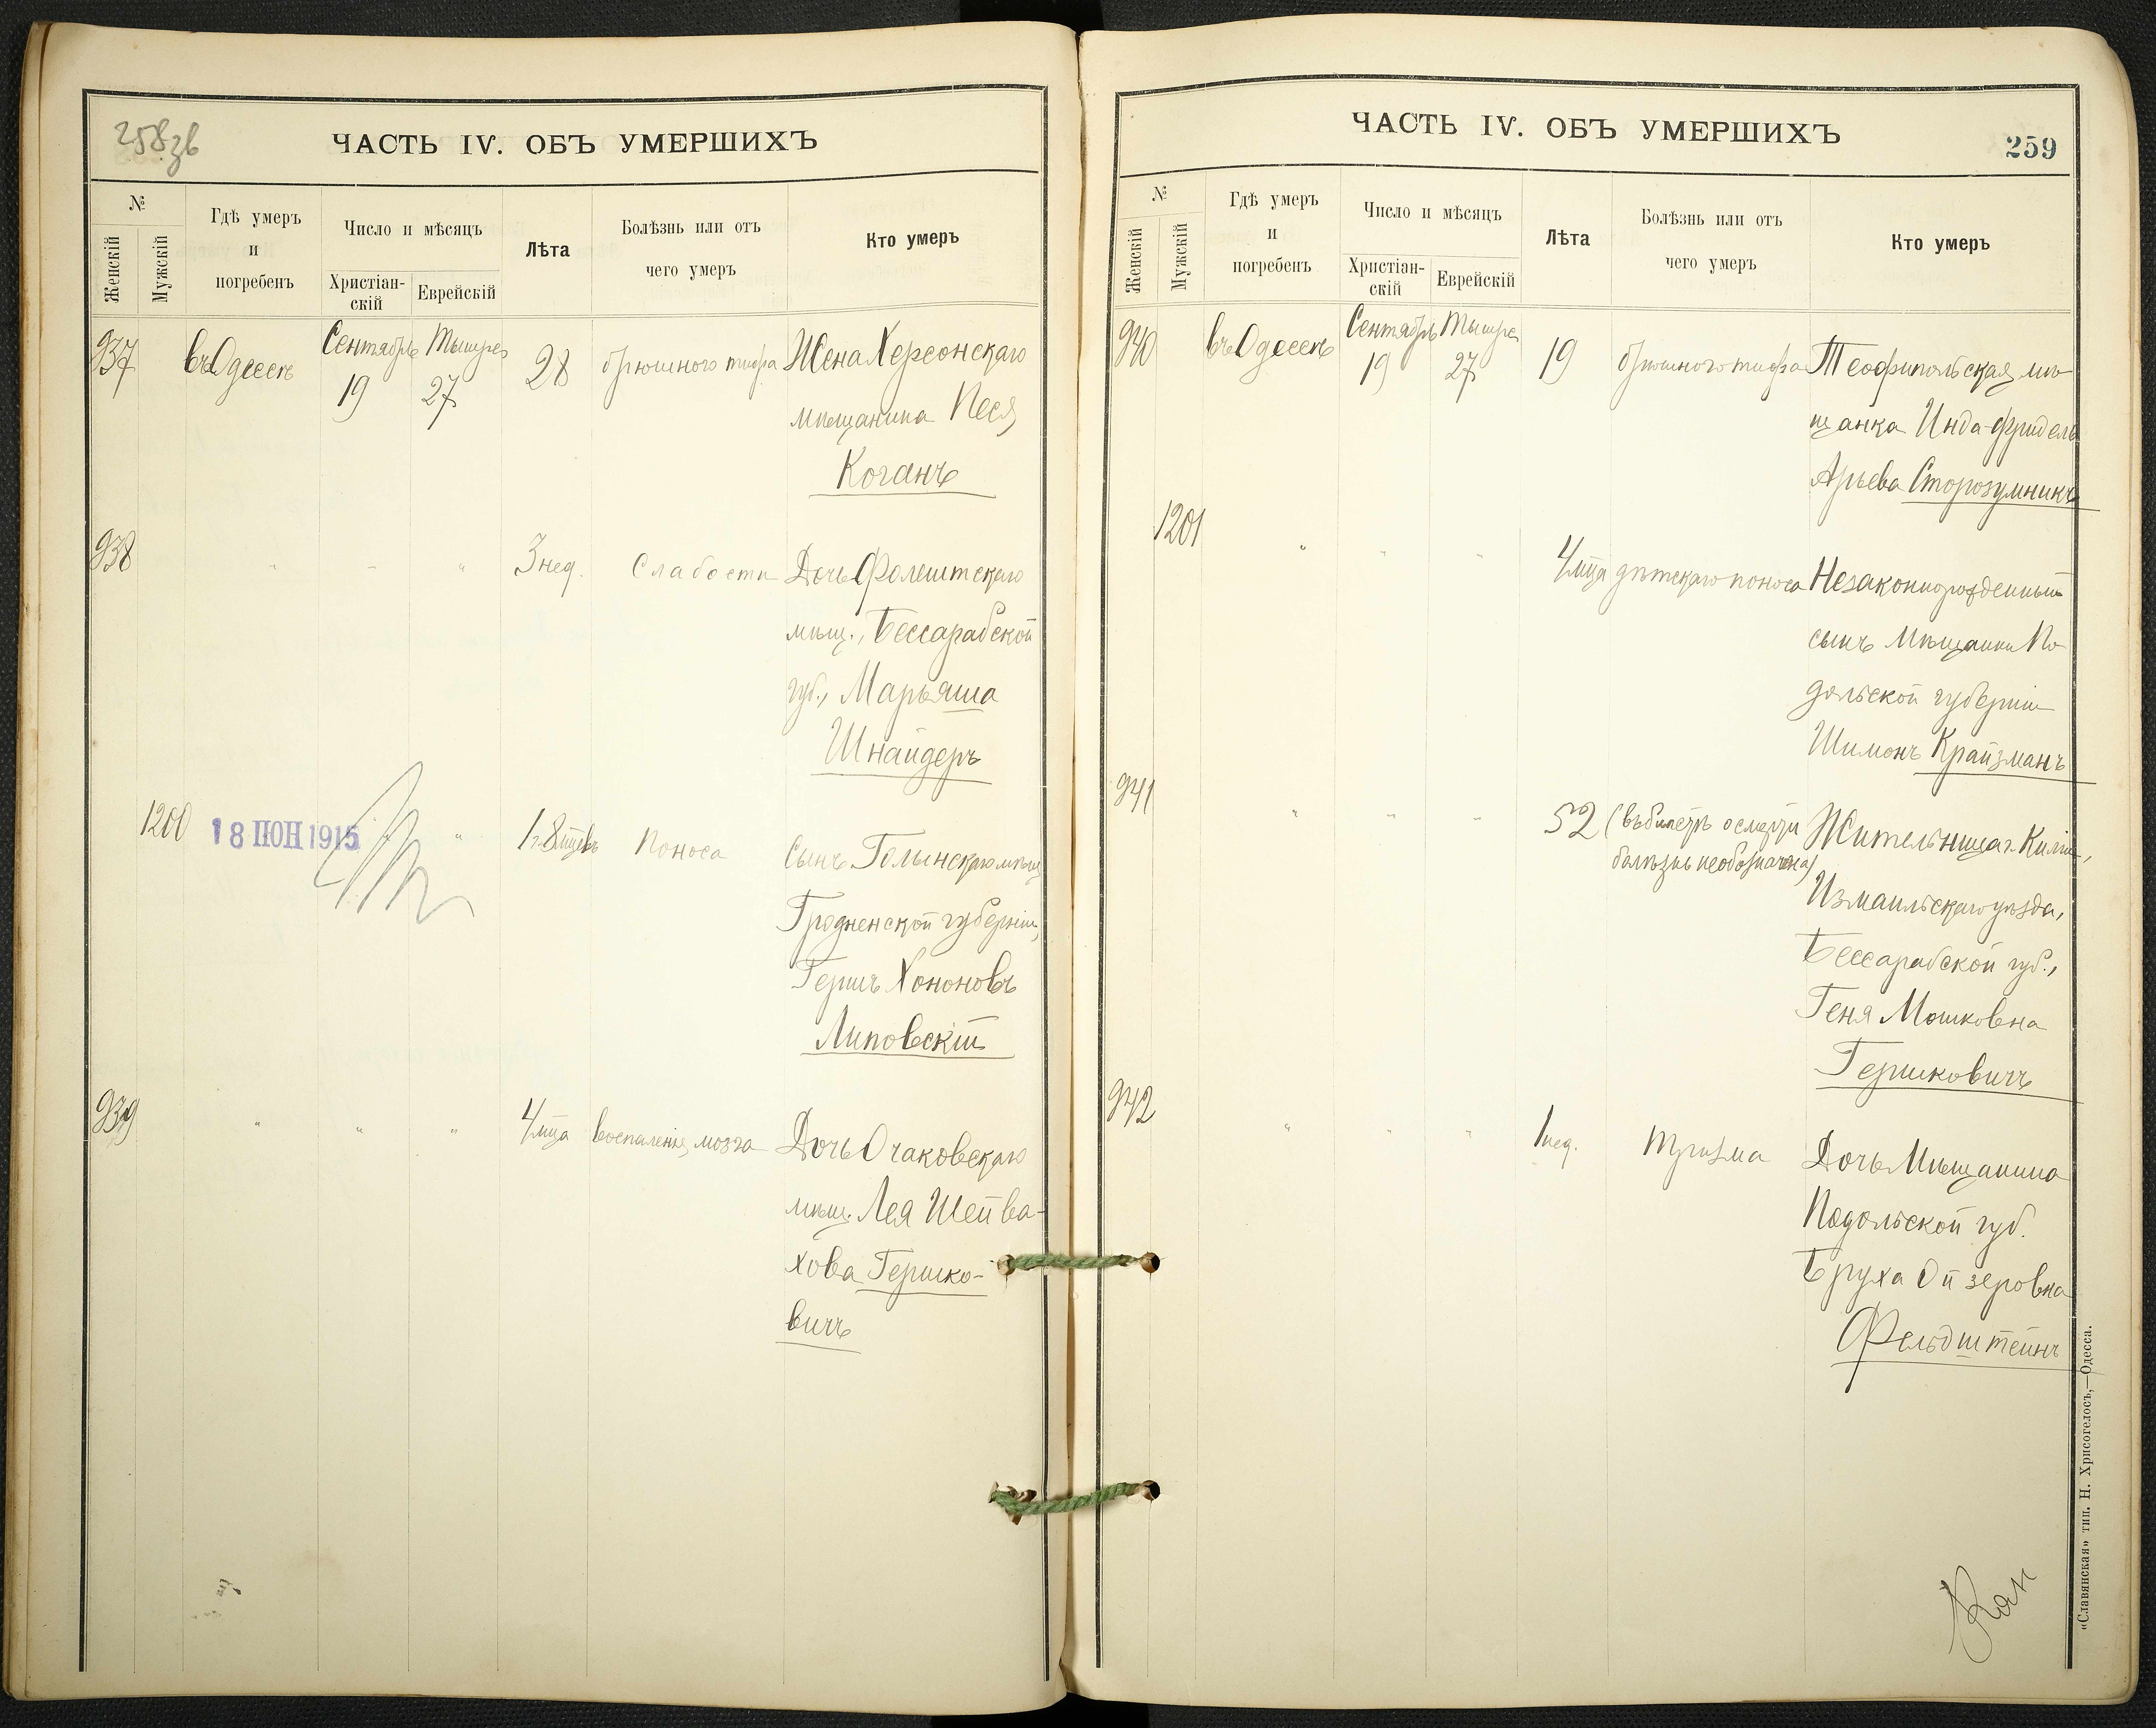 258 зв
ЧАСТЬ IV. ОБЪ УМЕРШИХЪ
№
Женскій
Мужскій
Гдѣ умеръ
и
погребенъ
Число и мѣсяцъ
Христіан-
скій
Еврейскій
Лѣта
Болѣзнь или отъ
чего умеръ
Кто умеръ
937 въ Одессѣ Сентябрь 19 Тышре 27 28 брюшного тифа Жена Херсонскаго
мѣщанина Песя
Коганъ
938 " " " 3 нед. Слабости Дочь Фолештскаго
мѣщ., Бессарабской
губ., Марьяша
Шнайдеръ
1200 18 ІЮН 1915 " 1 г. 8 мцевъ Поноса Сынъ Голынскаго мѣщ.
Гродненской губерніи,
Гершъ Хононовъ
Липовскій
939 " " " 4 мца воспаленія мозга Дочь Очаковскаго
мѣщ. Лея Шейва-
хова Гершко-
вичъ
ЧАСТЬ IV. ОБЪ УМЕРШИХЪ
259
№
Женскій
Мужскій
Гдѣ умеръ
и
погребенъ
Число и мѣсяцъ
Христіан-
скій
Еврейскій
Лѣта
Болѣзнь или отъ
чего умеръ
Кто умеръ
940 въ Одессѣ Сентябрь 19 Тышре 27 19 брюшного тифа Теофипольская мѣ-
щанка Инда-Фридель
Арьева Сторозумникъ
1201 " " " 4 мца дѣтскаго поноса Незаконнорожденный
сынъ Мѣщанки По-
дольской губерніи
Шимонъ Крайзманъ
941 " " " 52 (въ билетѣ о смерти Жительница г. Киліи,
болѣзнь необозначена)
Измаильскаго уѣзда,
Бессарабской губ.,
Геня Мошковна
Гершковичъ
942 " " " 1 нед. Тризма Дочь Мѣщанина
Подольской губ.
Бруха Ойзеровна
Фельдштейнъ
«Славянская» тип. Н. Хрисогелосъ,—Одесса.